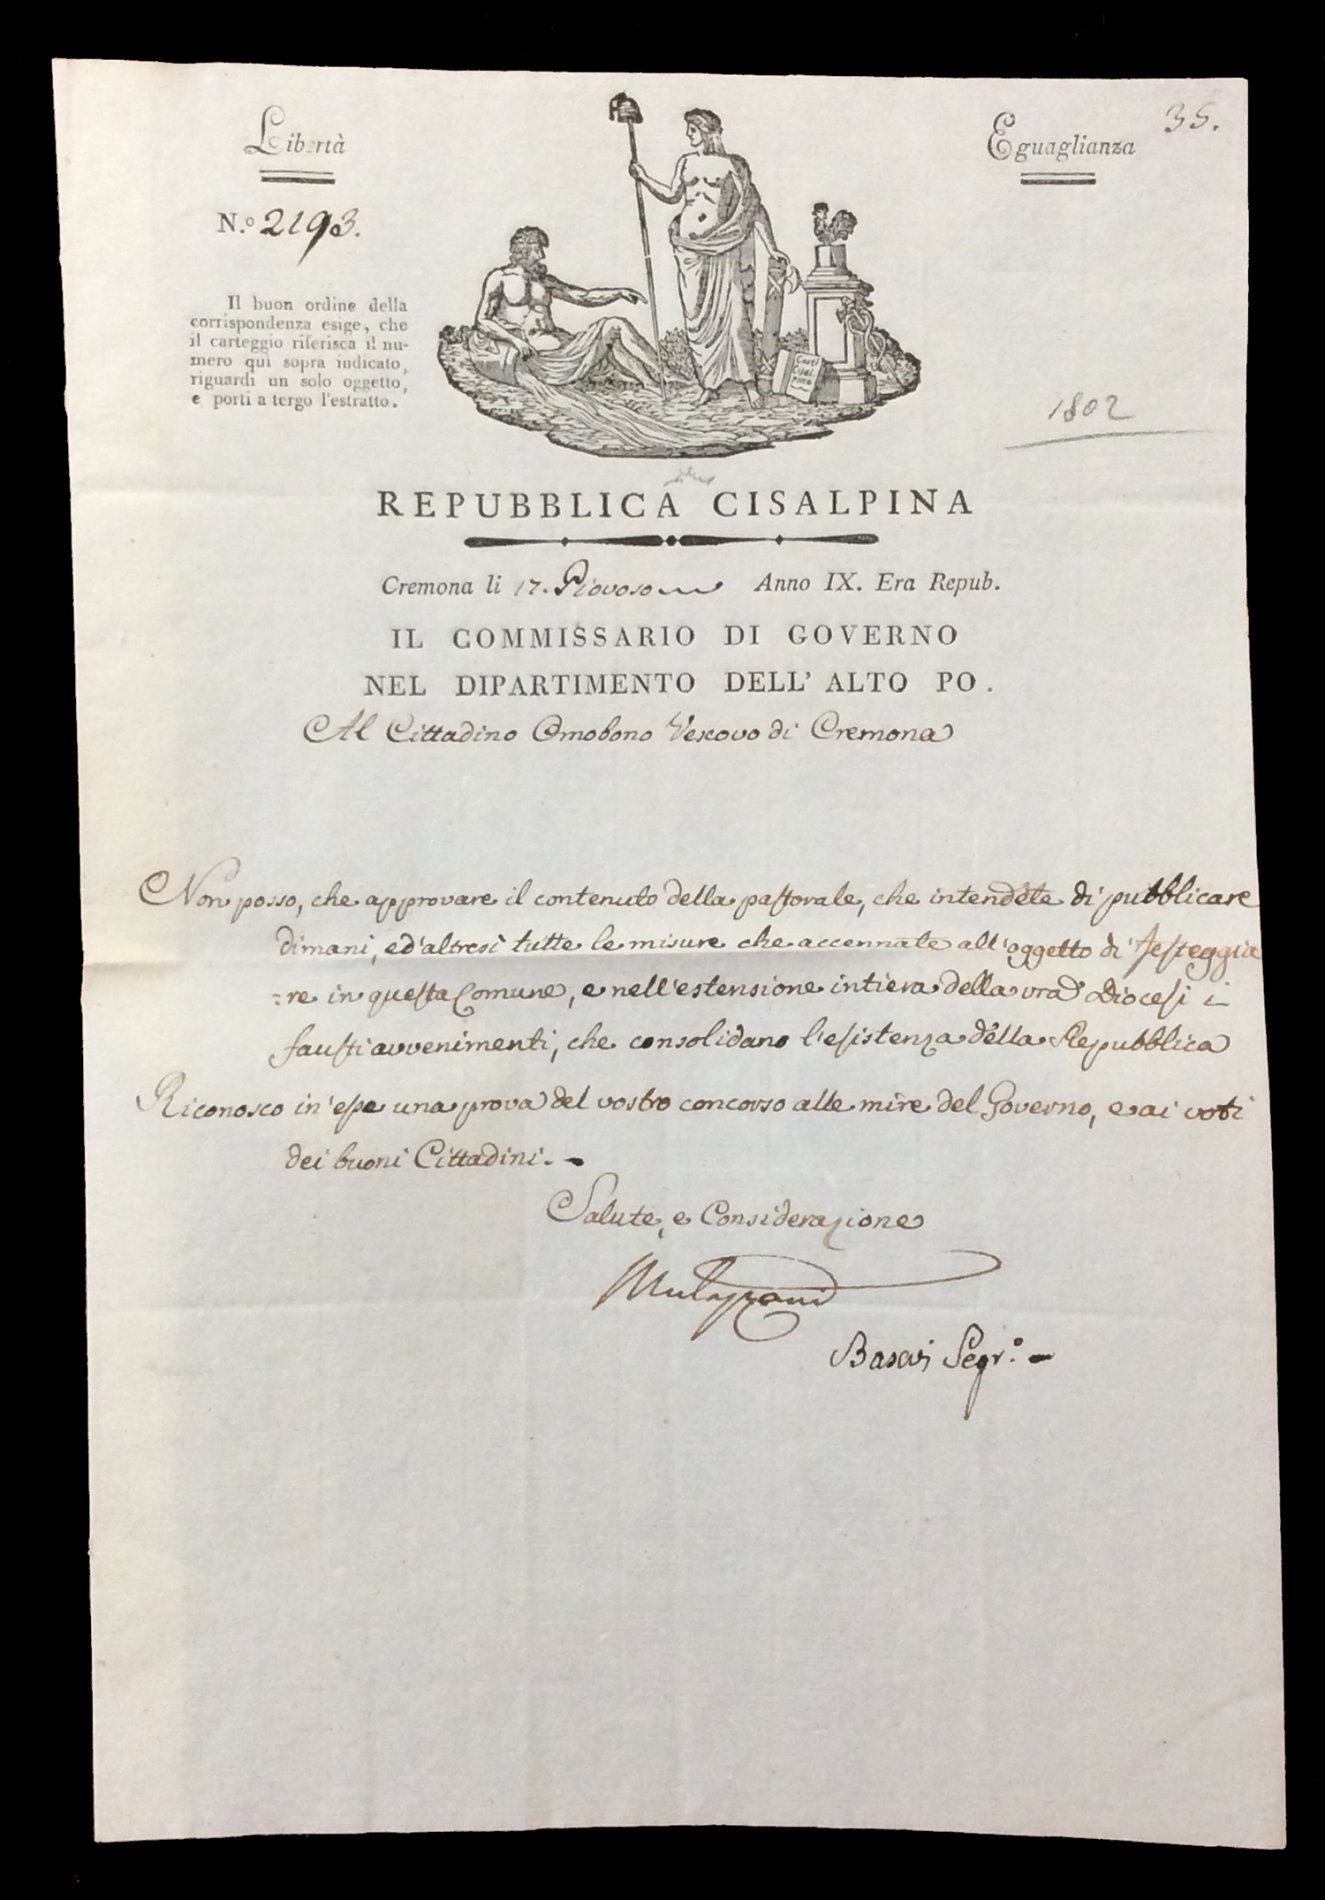 Libertà
Eguaglianza
35.
N.º 2193.
Il buon ordine della
corrispondenza esige, che
il carteggio riferisca il nu-
mero qui sopra indicato,
riguardi un solo oggetto,
e porti a tergo l'estratto.
Costi
Cisal
pina
1802
REPUBBLICA CISALPINA
Cremona li 17. Piovoso Anno IX. Era Repub.
IL COMMISSARIO DI GOVERNO
NEL DIPARTIMENTO DELL' ALTO PO.
Al Cittadino Omobono Vescovo di Cremona
Non posso, che approvare il contenuto della pastorale, che intendete di pubblicare
dimani, ed altresì tutte le misure che accennate all'oggetto di festeggia
=re in questa Comune, e nell'estensione intiera della vra Diocesi i
fausti avvenimenti, che consolidano l'esistenza della Repubblica
Riconosco in esse una prova del vostro concorso alle mire del Governo, e ai voti
dei buoni Cittadini. -
Salute, e Considerazione
Segr.º -